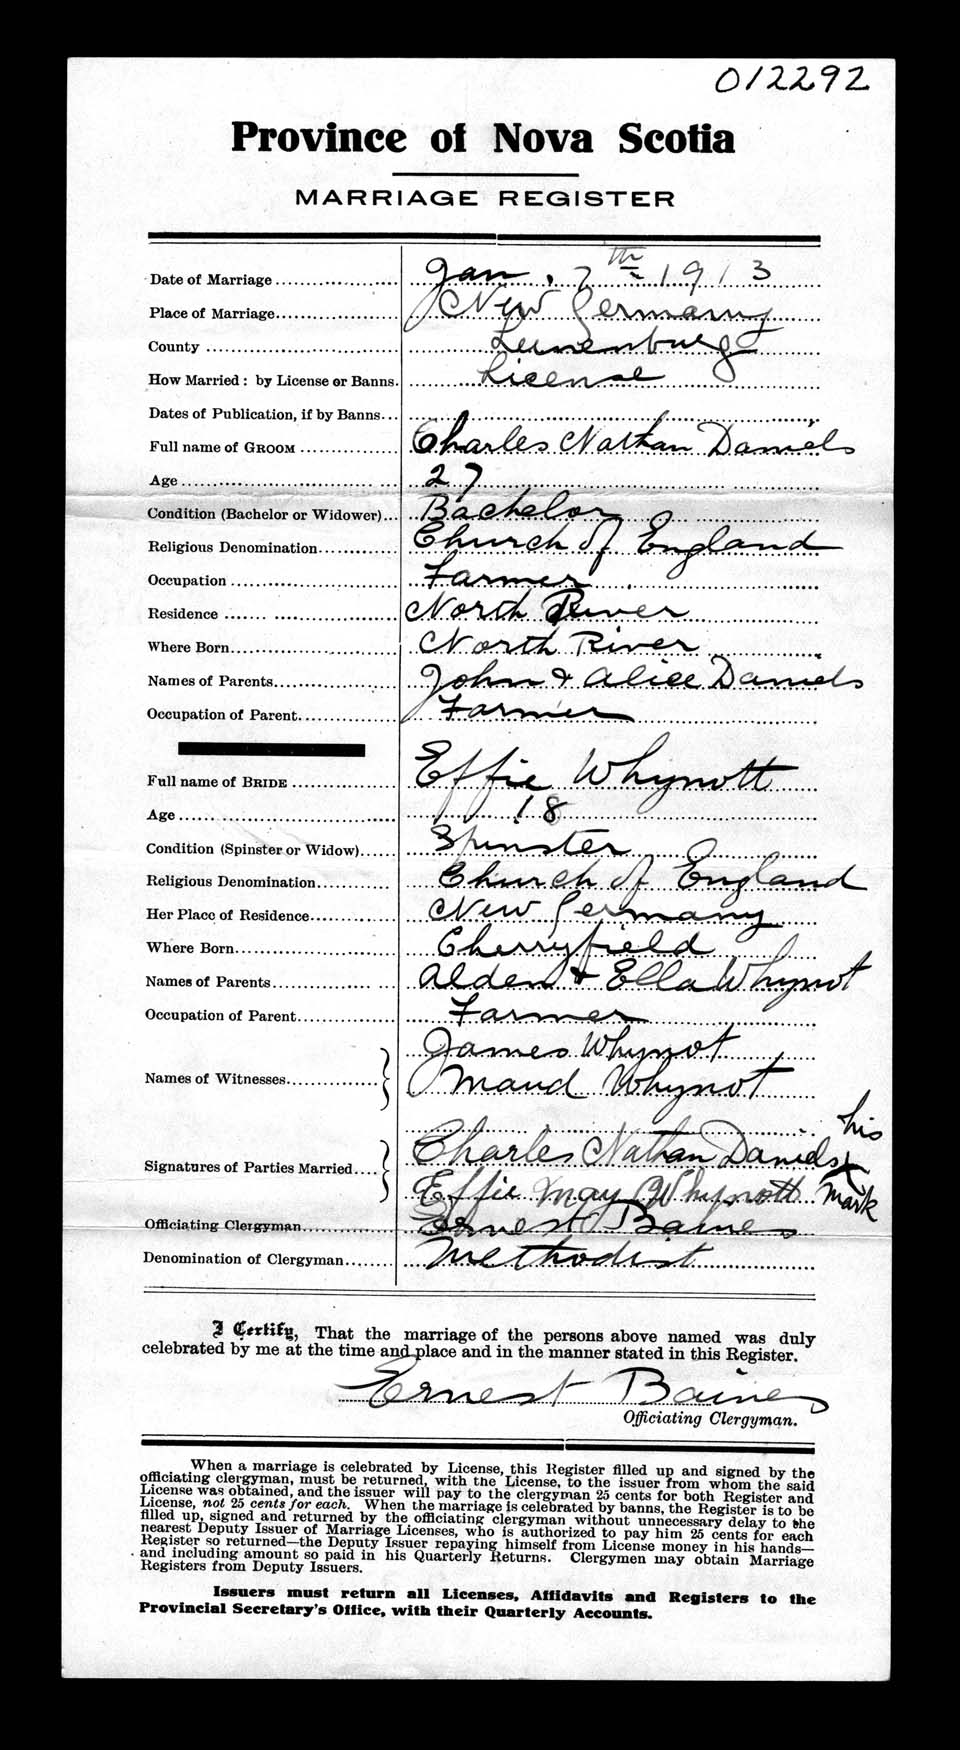 012292
Province of Nova Scotia
MARRIAGE REGISTER
Date of Marriage Jan. 7th 1913
Place of Marriage New Germany
County Lunenburg
How Married: by License or Banns. License
Dates of Publication, if by Banns
Full name of GROOM Charles Nathan Daniels
Age 27
Condition (Bachelor or Widower) Bachelor
Religious Denomination Church of England
Occupation Farmer
Residence North River
Where Born North River
Names of Parents John & Alice Daniels
Occupation of Parent Farmer
Full name of BRIDE Effie Whynott
Age 18
Condition (Spinster or Widow) Spinster
Religious Denomination Church of England
Her Place of Residence New Germany
Where Born Cherryfield
Names of Parents Alden & Ella Whynot
Occupation of Parent Farmer
James Whynot
Names of Witnesses Maud Whynot
his
Signatures of Parties Married Charles Nathan Daniels X
Effie May Whynott mark
Officiating Clergyman Ernest Baines
Denomination of Clergyman Methodist
I Certify, That the marriage of the persons above named was duly
celebrated by me at the time and place and in the manner stated in this Register.
Ernest Baines
Officiating Clergyman.
When a marriage is celebrated by License, this Register filled up and signed by the
officiating clergyman, must be returned, with the License, to the issuer from whom the said
License was obtained, and the issuer will pay to the clergyman 25 cents for both Register and
License, not 25 cents for each. When the marriage is celebrated by banns, the Register is to be
filled up, signed and returned by the officiating clergyman without unnecessary delay to the
nearest Deputy Issuer of Marriage Licenses, who is authorized to pay him 25 cents for each
Register so returned—the Deputy Issuer repaying himself from License money in his hands—
and including amount so paid in his Quarterly Returns. Clergymen may obtain Marriage
Registers from Deputy Issuers.
Issuers must return all Licenses, Affidavits and Registers to the
Provincial Secretary's Office, with their Quarterly Accounts.